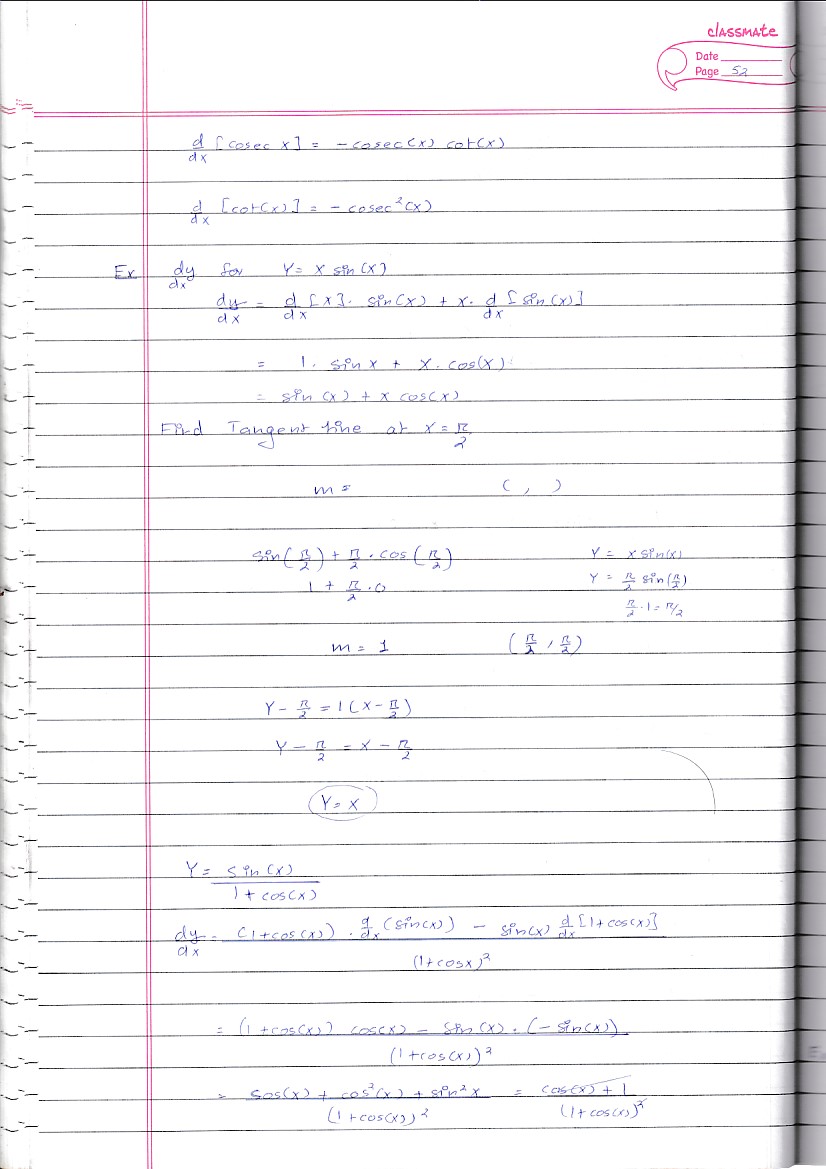 classmate
Date
Page 52
d/dx [cosec x] = -cosec(x) cot(x)
d/dx [cot(x)] = -cosec²(x)
Ex dy/dx for Y= x sin(x)
dy/dx = d/dx [x]. sin(x) + x. d/dx [sin(x)]
= 1. sin x + x. cos(x)
= sin(x) + x cos(x)
Find Tangent line at x = π/2
m = ( , )
sin(π/2) + π/2 . cos(π/2) Y = x sin(x)
1 + π/2 . 0 Y = π/2 sin(π/2)
π/2 . 1 = π/2
m = 1 (π/2, π/2)
Y - π/2 = 1(x - π/2)
Y - π/2 = x - π/2
Y = x
Y = sin(x) / 1+cos(x)
dy/dx = (1+cos(x)) . d/dx (sin(x)) - sin(x) d/dx [1+cos(x)] / (1+cosx)²
= (1+cos(x)) cos(x) - sin(x) . (-sin(x)) / (1+cos(x))²
= sos(x) + cos²(x) + sin²x / (1+cos(x))² = cos(x)+1 / (1+cos(x))²